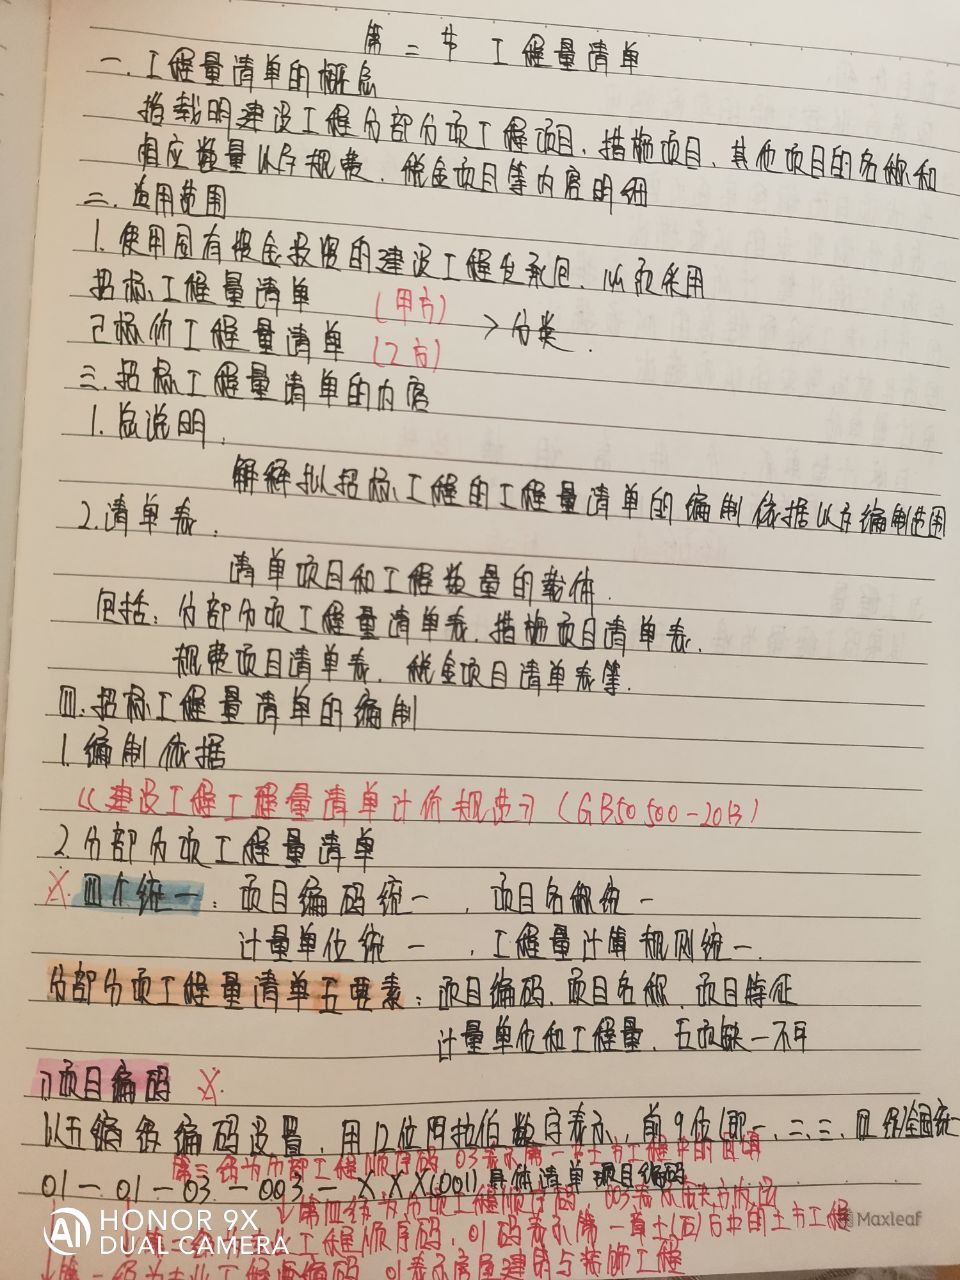 第二节 工程量清单
一.工程量清单的概念
指载明建设工程分部分项工程项目、措施项目、其他项目的名称和
相应数量以及规费、税金项目等内容明细
二.适用范围
1.使用国有资金投资的建设工程发承包、必须采用
招标工程量清单 (甲方)
已标价工程量清单 (乙方) >分类.
三.招标工程量清单的内容
1.总说明:
解释拟招标工程的工程量清单的编制依据以及编制范围
2.清单表:
清单项目和工程数量的载体.
包括:分部分项工程量清单表.措施项目清单表.
规费项目清单表、税金项目清单表等.
四.招标工程量清单的编制
1.编制依据
《建设工程工程量清单计价规范》(GB50500-2013)
2.分部分项工程量清单
X.四个统一:项目编码统一、项目名称统一
计量单位统一、工程量计算规则统一
分部分项工程量清单五要素:项目编码、项目名称、项目特征
计量单位和工程量、五项缺一不可
1)项目编码 X.
以五级编码设置、用12位阿拉伯数字表示、前9位(即一、二、三、四级全国统一
第三级为分部工程顺序码 03表示第一章土方工程中的回填
01-01-03-003-XXX(001)具体清单项目编码
↓第四级为分项工程顺序码 003表示
工程顺序码、01码表示第一章土(石)方中的土方工程
↓第一级为专业工程 编码 01表示房屋建筑与装饰工程
HONOR 9X
DUAL CAMERA
Maxleaf